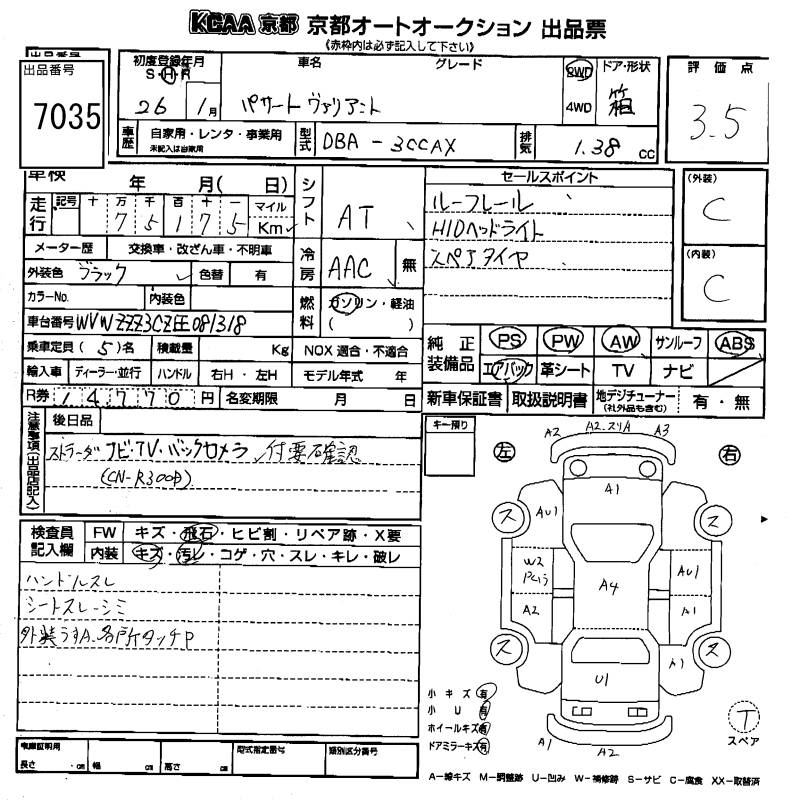 KCAA 京都 京都オートオークション 出品票
(赤枠内は必ず記入して下さい)
出品番号
7035
初度登録年月
S・H・R
26 1月
車名
グレード
パサート ヴァリアント
2WD
4WD
ドア・形状
箱
評価点
3.5
車歴
自家用・レンタ・事業用
未記入は自家用
型式
DBA-3CCAX
排気
1.38 cc
車検 年 月( 日)
走行
記号 十 万 千 百 十 一 マイル
7 5 1 7 5 Km
シフト
AT
セールスポイント
ルーフレール
HIDヘッドライト
スペアタイヤ
(外装)
C
(内装)
C
メーター歴 交換車・改ざん車・不明車
冷房
AAC 無
外装色 ブラック 色替 有
カラーNo. 内装色
燃料
ガソリン・軽油
( )
車台番号 WVWZZZ3CZEE081318
乗車定員 (5)名 積載量 Kg NOX 適合・不適合
純正装備品
PS PW AW サンルーフ ABS
エアバック 革シート TV ナビ
輸入車 ディーラー・並行 ハンドル 右H・左H モデル年式 年
R券 14770円 名変期限 月 日
新車保証書 取扱説明書 地デジチューナー (社外品も含む) 有・無
注意事項(出品店記入)
後日品
ストラーダ ナビ・TV・バックカメラ 付要確認
(CN-R300D)
キー預り
左
右
A2 A2.スリA A3
A1
AU1
ス ス
W2
Pキョウ
A4
AU1
A2
A1
ス ス
A1
U1
A1 A2
T
スペア
検査員記入欄
FW キズ・飛石・ヒビ割・リペア跡・X要
内装 キズ・汚レ・コゲ・穴・スレ・キレ・破レ
ハンドルスレ
シートスレ・シミ
外装うすA、各所タッチP
小キズ 有
小U 有
ホイールキズ 有
ドアミラーキズ 有
車庫証明用
長さ cm 幅 cm 高さ cm
型式指定番号
類別区分番号
A-線キズ M-調整跡 U-凹み W-補修跡 S-サビ C-腐食 XX-取替済